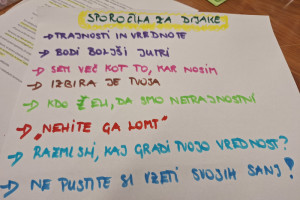 SPOROČILA ZA DIJAKE
→ TRAJNOSTI IN VREDNOTE
→ BODI BOLJŠI JUTRI
→ SEM VEČ KOT TO, KAR NOSIM
→ IZBIRA JE TVOJA
→ KDO ŽELI, DA SMO NETRAJNOSTNI
→ „NEHITE GA LOMT"
→ RAZMISLI, KAJ GRADI TVOJO VREDNOST?
→ NE PUSTITE SI VZETI SVOJIH SANJ!